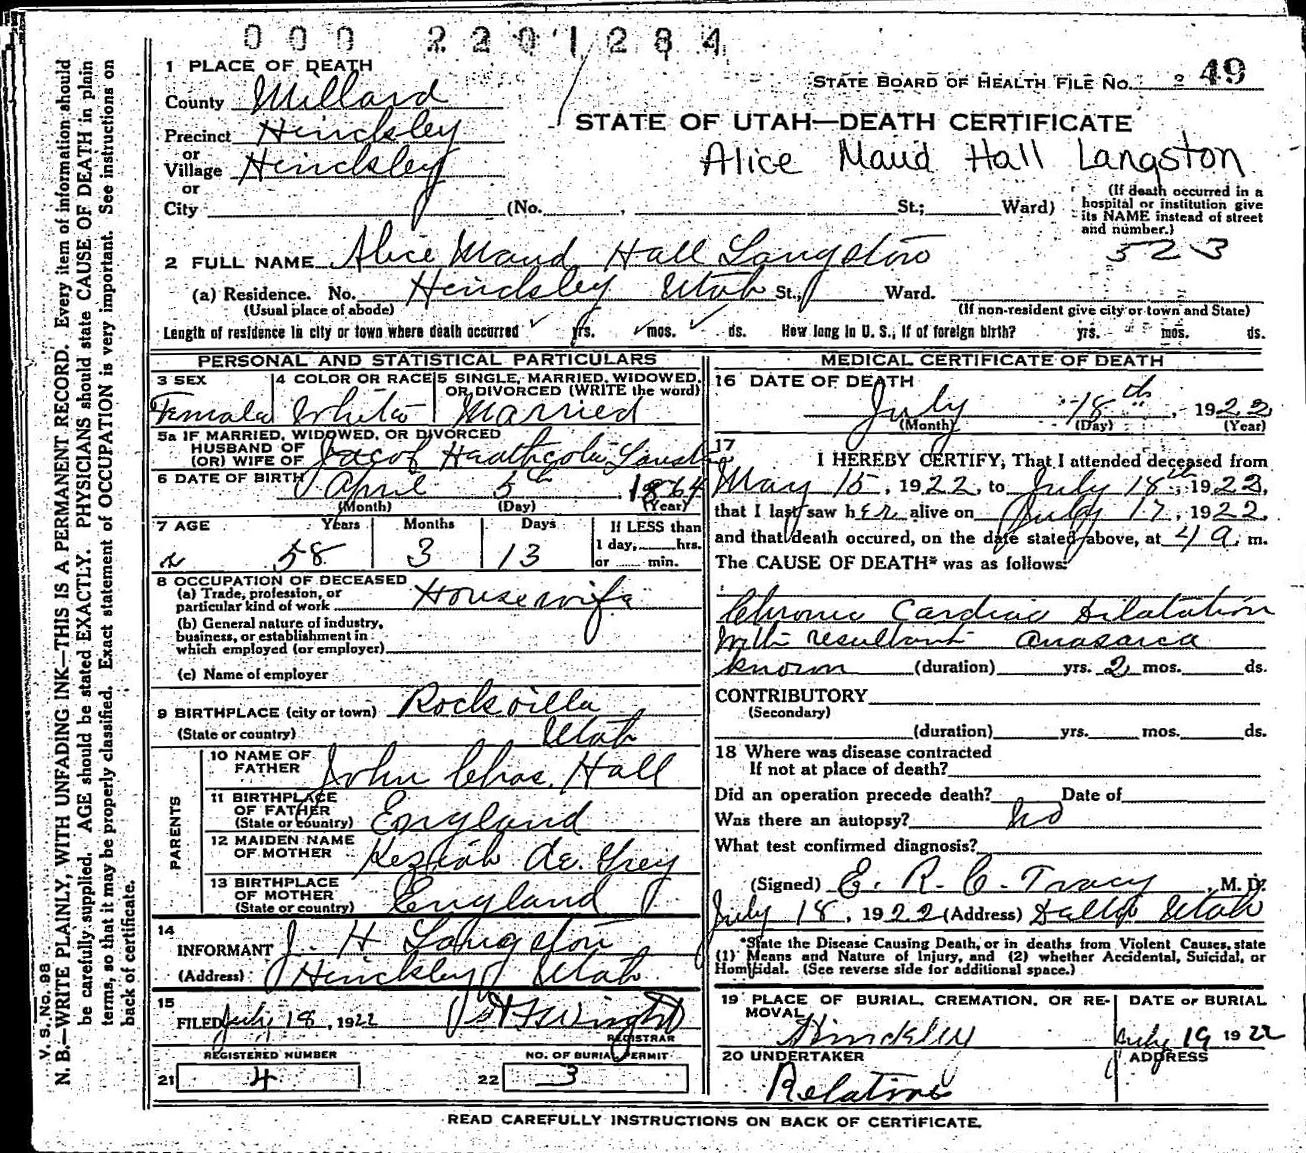 000 2201284
1 PLACE OF DEATH
STATE BOARD OF HEALTH FILE NO. 249
County Millard
STATE OF UTAH—DEATH CERTIFICATE
Precinct Hinckley
Alice Maud Hall Langston
or
Village Hinckley
or
City (No. St.; Ward)
(If death occurred in a
hospital or institution give
its NAME instead of street
and number.)
323
2 FULL NAME Alice Maud Hall Langston
(a) Residence. No. Hinckley Utah St., Ward.
(Usual place of abode) (If non-resident give city or town and State)
Length of residence in city or town where death occurred yrs. mos. ds. How long in U. S., if of foreign birth? yrs. mos. ds.
PERSONAL AND STATISTICAL PARTICULARS
3 SEX 4 COLOR OR RACE 5 SINGLE, MARRIED, WIDOWED,
OR DIVORCED (WRITE the word)
Female White Married
5a IF MARRIED, WIDOWED, OR DIVORCED
HUSBAND OF
(OR) WIFE OF Jacob Heathcote Langston
6 DATE OF BIRTH April 5th 1864
(Month) (Day) (Year)
7 AGE Years Months Days If LESS than
58 3 13 1 day, hrs.
or min.
8 OCCUPATION OF DECEASED
(a) Trade, profession, or
particular kind of work Housewife
(b) General nature of industry,
business, or establishment in
which employed (or employer)
(c) Name of employer
9 BIRTHPLACE (city or town) Rockville
(State or country) Utah
PARENTS
10 NAME OF
FATHER John Chas. Hall
11 BIRTHPLACE
OF FATHER
(State or country) England
12 MAIDEN NAME
OF MOTHER Keziah De. Grey
13 BIRTHPLACE
OF MOTHER
(State or country) England
14
INFORMANT J. H Langston
(Address) Hinckley Utah
15
FILED July 18, 1922
REGISTRAR
REGISTERED NUMBER NO. OF BURIAL PERMIT
21 4 22 3
MEDICAL CERTIFICATE OF DEATH
16 DATE OF DEATH
July 18th, 1922
(Month) (Day) (Year)
17
I HEREBY CERTIFY, That I attended deceased from
May 15, 1922, to July 18th, 1922,
that I last saw her alive on July 17, 1922,
and that death occured, on the date stated above, at 4 a. m.
The CAUSE OF DEATH* was as follows:
Chronic Cardiac Dilatation
with resultant anasarca
known (duration) yrs. 2 mos. ds.
CONTRIBUTORY
(Secondary)
(duration) yrs. mos. ds.
18 Where was disease contracted
If not at place of death?
Did an operation precede death? Date of
Was there an autopsy? No
What test confirmed diagnosis?
(Signed) E. R. C. Tracy, M. D.
July 18, 1922 (Address) Delta, Utah
*State the Disease Causing Death, or in deaths from Violent Causes, state
(1) Means and Nature of Injury, and (2) whether Accidental, Suicidal, or
Homicidal. (See reverse side for additional space.)
19 PLACE OF BURIAL, CREMATION, OR RE-
MOVAL DATE OF BURIAL
Hinckley July 19 1922
20 UNDERTAKER ADDRESS
Relatives
READ CAREFULLY INSTRUCTIONS ON BACK OF CERTIFICATE.
V. S. No. 98
N. B.—WRITE PLAINLY, WITH UNFADING INK—THIS IS A PERMANENT RECORD. Every item of information should
be carefully supplied. AGE should be stated EXACTLY. PHYSICIANS should state CAUSE OF DEATH in plain
terms, so that it may be properly classified. Exact statement of OCCUPATION is very important. See instructions on
back of certificate.